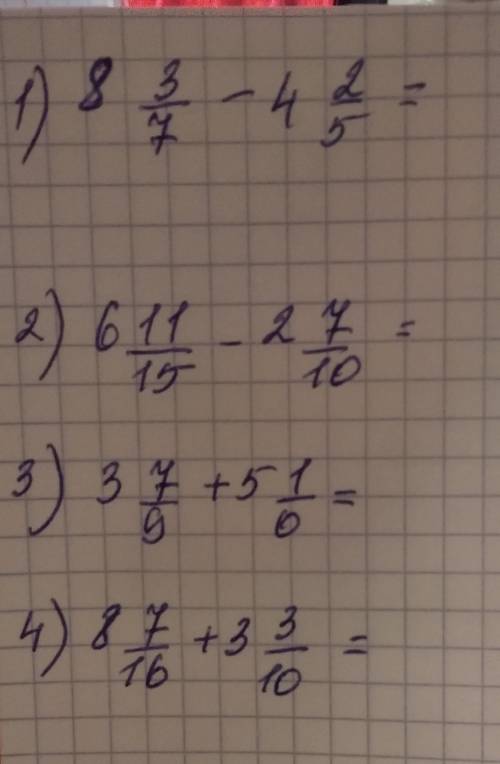 1) 8 3/7 - 4 2/5 =
2) 6 11/15 - 2 7/10 =
3) 3 7/9 + 5 1/6 =
4) 8 7/16 + 3 3/10 =